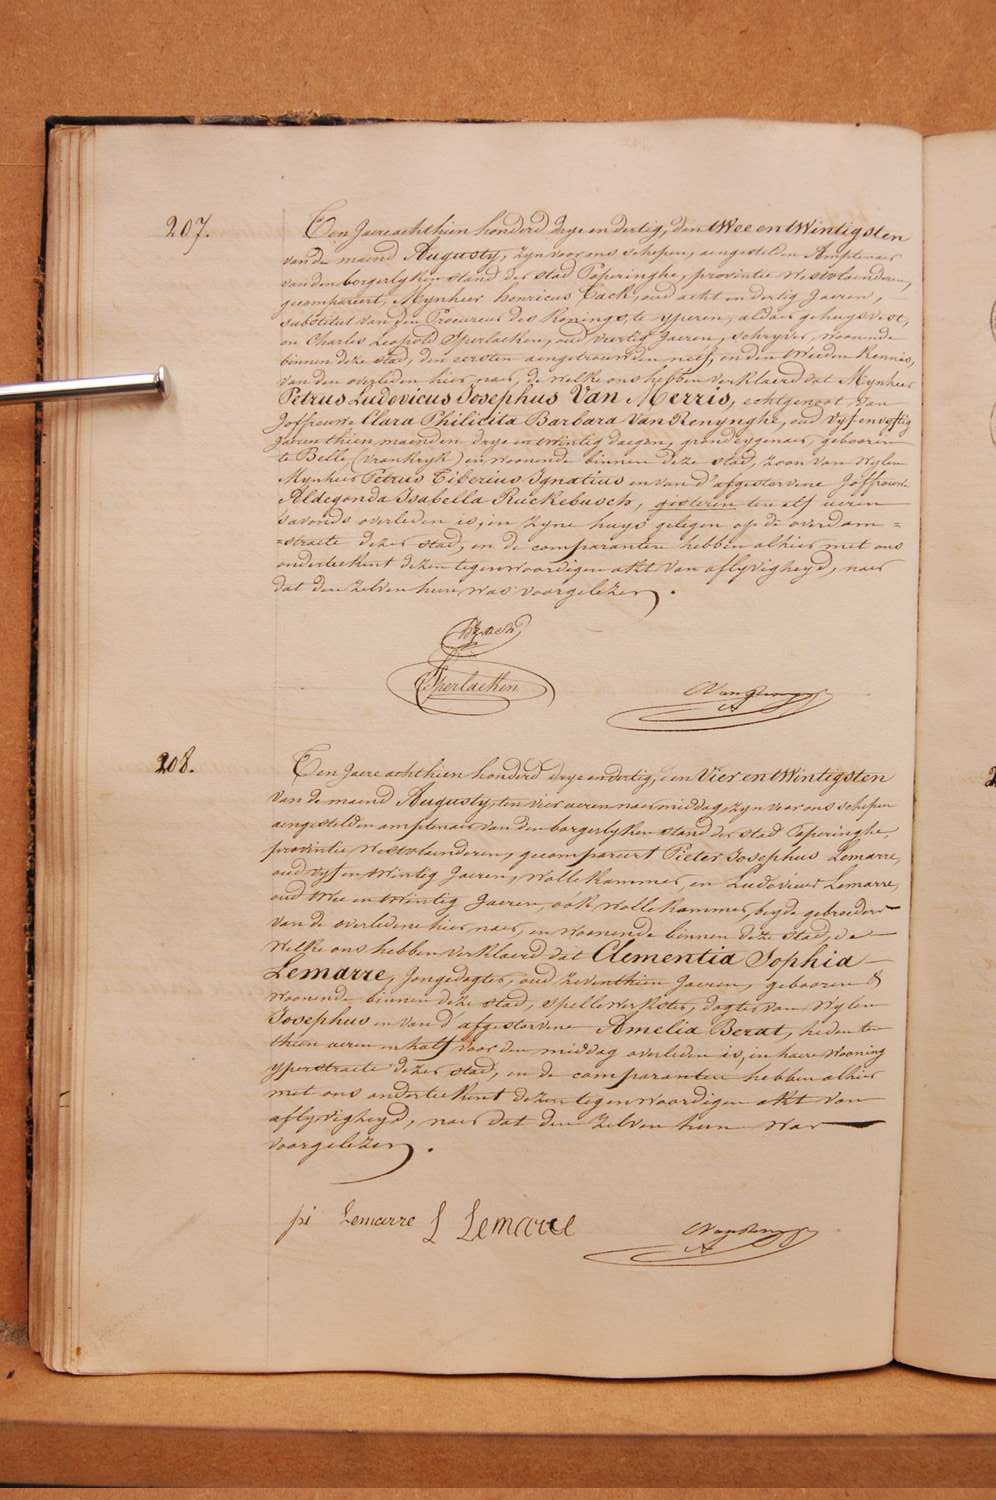 207.
Ten Jaere achthien honderd drye en dertig, den twee en twintigsten
van de maend Augusty, zyn voor ons schepen, aengestelden Amptenaer
van den borgerlyken stand der stad Poperinghe, provintie Westvlaenderen,
gecompareert, Mynheer henricus Cack, oud acht en dertig Jaeren,
substitut van den Procureur des Konings, te yperen, aldaer gehuysvest,
en Charles Leopold Sperlaeken, oud veertig Jaeren, schryver, woonende
binnen deze stad, den eersten aengetrouwden neef, en den tweeden kennis,
van den overleden hier naer, de welke ons hebben verklaerd dat Mynheer
Petrus Ludovicus Josephus Van Merris, echtgenoot van
Joffrouwe Clara Philicita Barbara Van Renynghe, oud vyf en veftig
Jaeren thien maenden, drye en twintig daegen, grondeygenaer, gebooren
te Belle (vrankryk) en woonende binnen deze stad, zoon van wylen
Mynheer Petrus Tiberius Ignatius en van d'afgestorvene Joffrouwe
Aldegonda Isabella Ruckebusch, gisteren ten elf ueren
's avonds overleden is, in zyne huys gelegen op de overdam=
=straete dezer stad, en de comparanten hebben alhier met ons
onderteekent dezen tegenwoordigen akt van aflyvigheyd, naer
dat den zelven hun was voorgelezen.
Sperlaeken
208.
Ten Jaere achthien honderd drye en dertig, den vier en twintigsten
van de maend Augusty, ten vier ueren naer middag, zyn voor ons schepen
aengestelden amptenaer van den borgerlyken stand der stad Poperinghe,
provintie Westvlaenderen, gecompareert Pieter Josephus Lemarre,
oud vyf en twintig Jaeren, wollekammer, en Ludovicus Lemarre,
oud twee en twintig Jaeren, ook wollekammer, beyde gebroeders
van de overledene hier naer, en woonende binnen deze stad, de
welke ons hebben verklaerd dat Clementia Sophia
Lemarre, Jongedogter, oud zeventhien Jaeren, gebooren &
woonende binnen deze stad, spellewerkster, dogter van wylen
Josephus en van d'afgestorvene Amelia Berat, heden ten
thien ueren en half voor den middag overleden is, in haere wooning
yperstraete dezer stad, en de comparanten hebben alhier
met ons onderteekent dezen tegenwoordigen akt van
aflyvigheyd, naer dat den zelven hun was
voorgelezen.
pi Lemarre L Lemarre